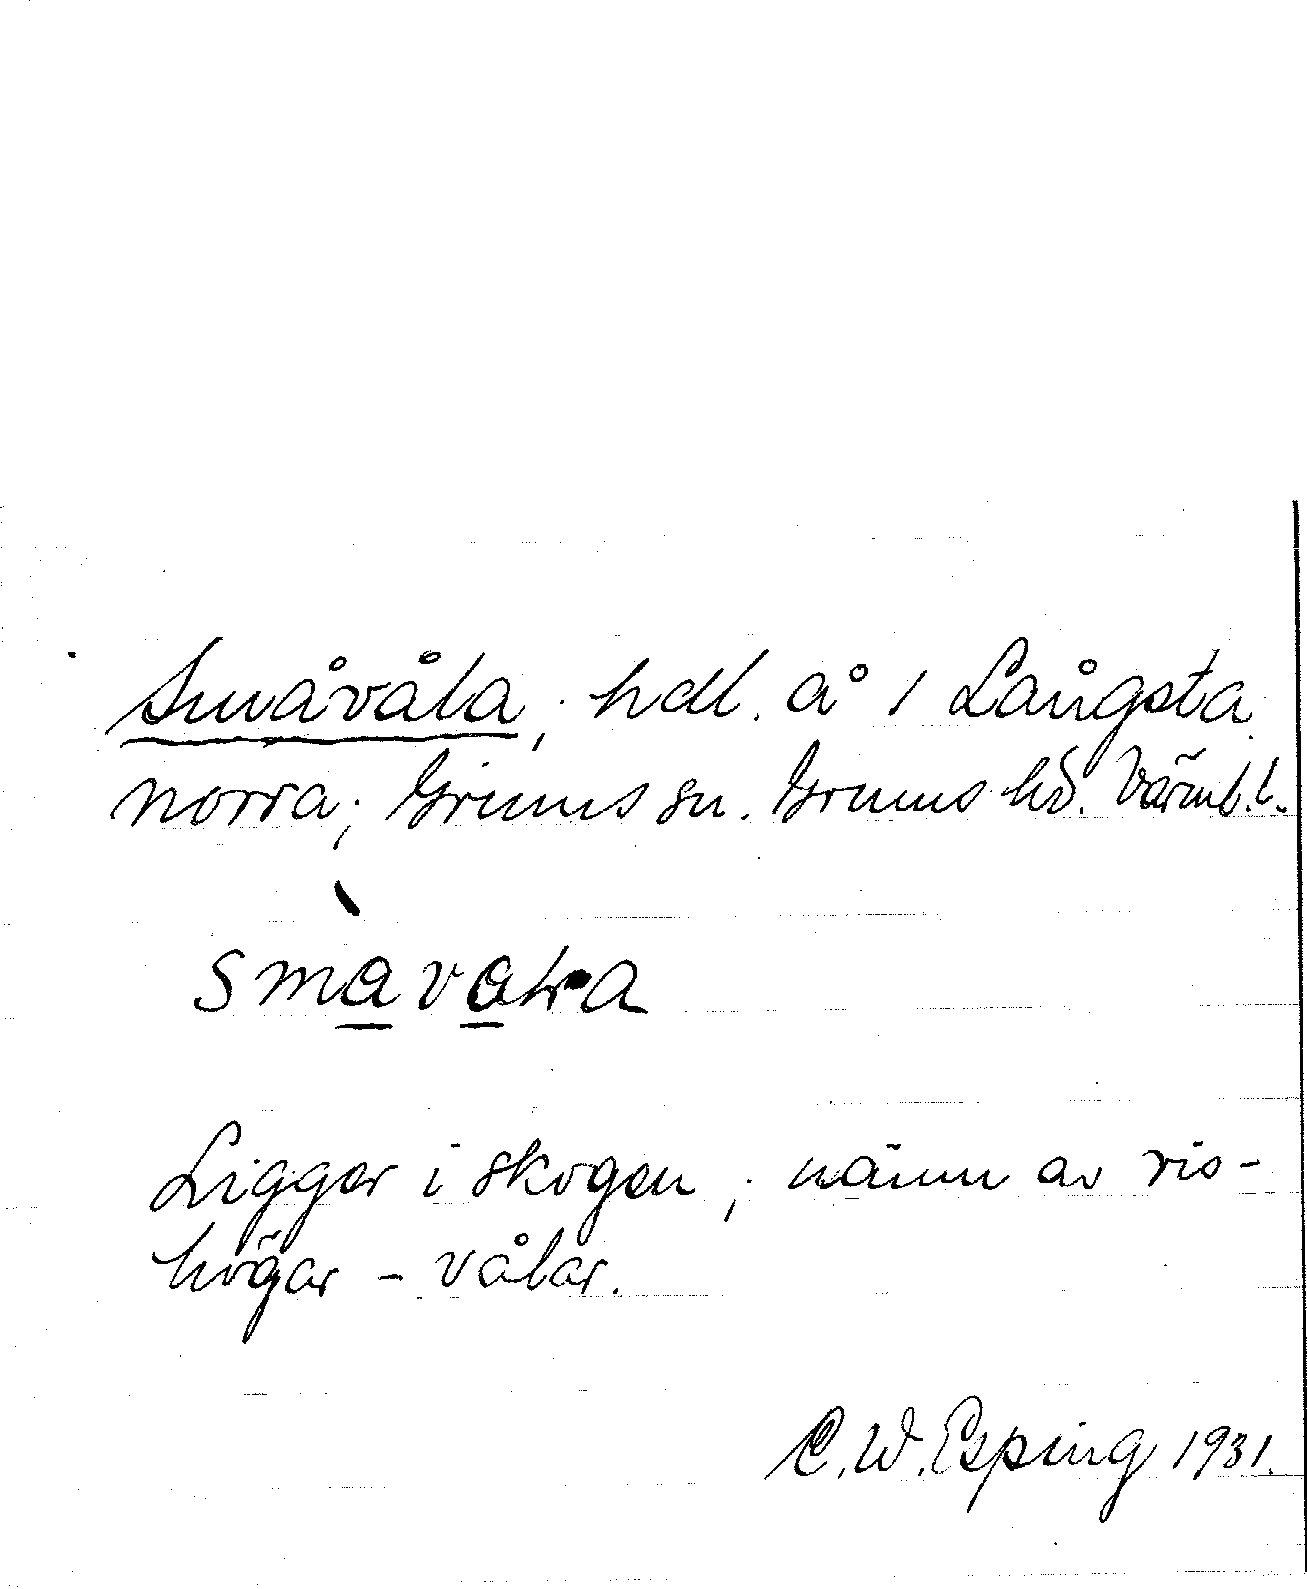 Småvåla, hdl. å 1 Långsta
norra; Grums sn. Grums hd. Värml. l.
smavaha
Ligger i skogen; nämn av ris-
högar - vålar.
C.W. Esping 1931.